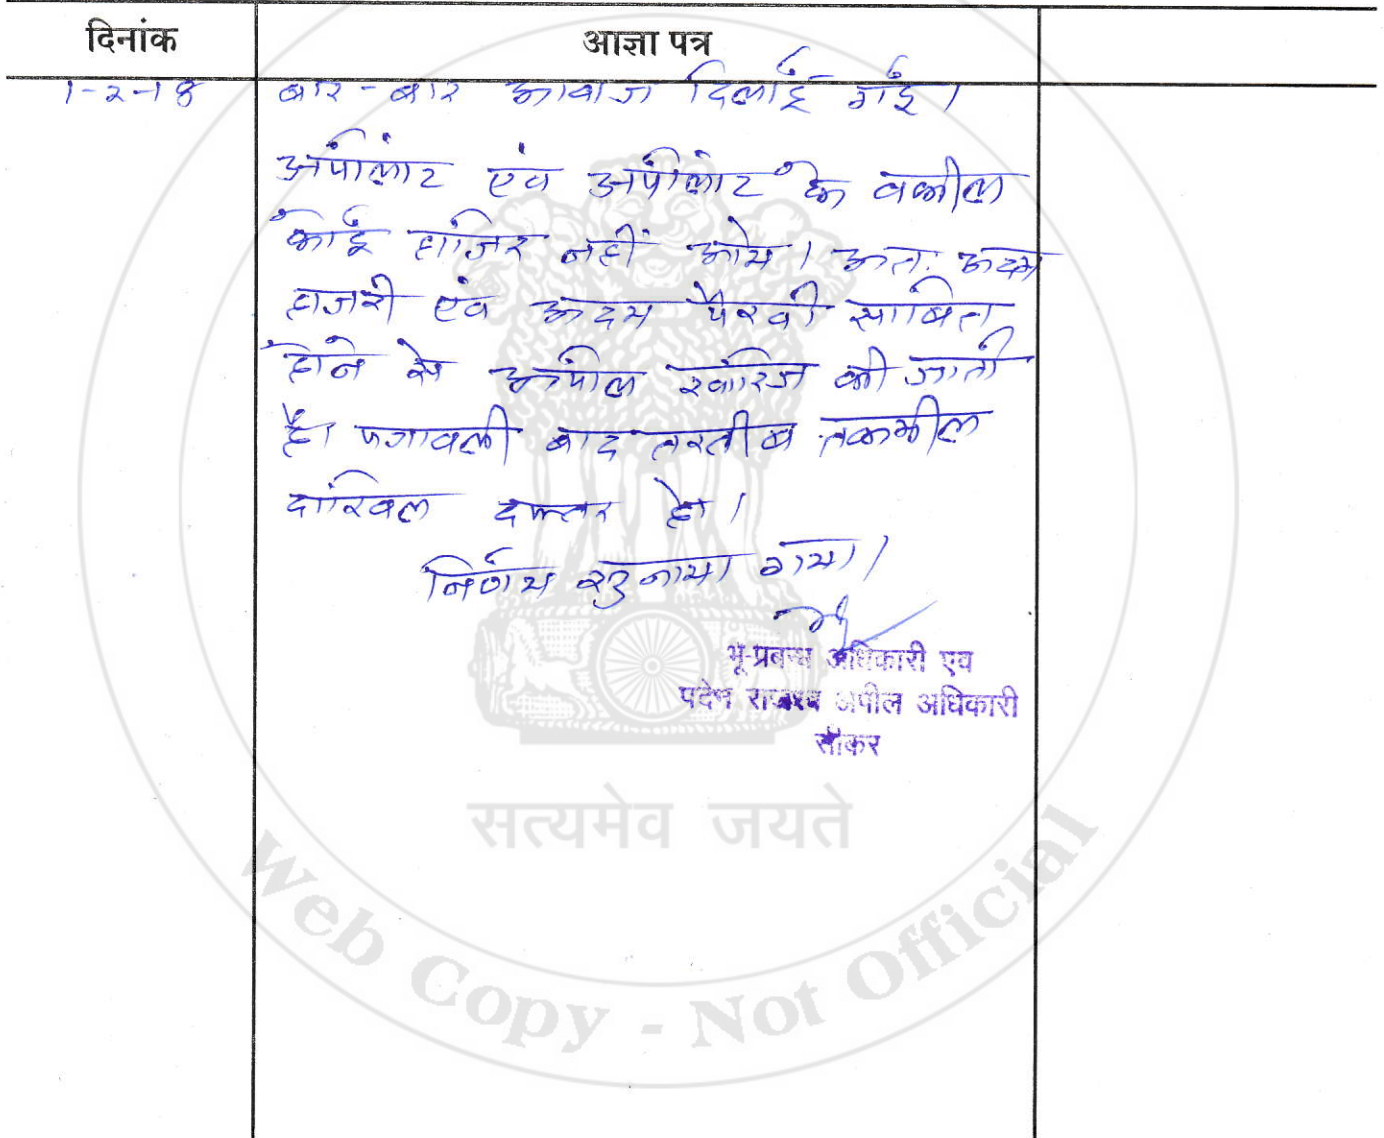 दिनांक	आज्ञा पत्र
1-2-18	बार-बार आवाज दिलाई गई।
अपीलांट एंव अपीलांट के वकील
कोई हाजिर नहीं आये। अतः अदम
हाजरी एंव अदम पैरवी साबित
होने से अपील खारिज की जाती
है। पत्रावली बाद तरतीब तकमील
दाखिल दफ्तर हो।
निर्णय सुनाया गया।
भू-प्रबन्ध अधिकारी एव
पदेन राजस्व अपील अधिकारी
सीकर
सत्यमेव जयते
Web Copy - Not Official